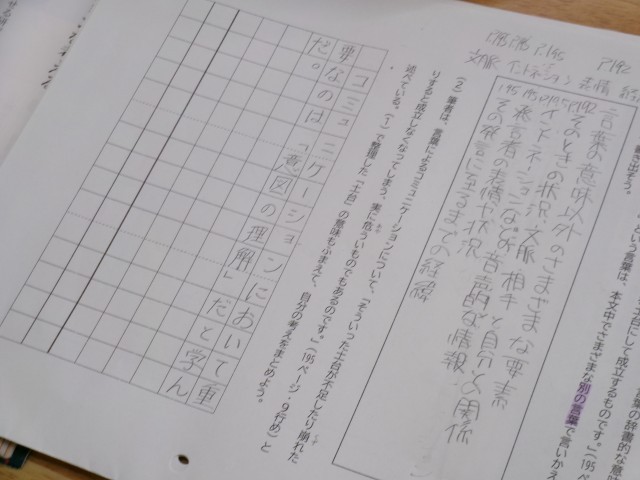 という言葉は、本文中でさまざまな別の言葉で言いかえ
P.192
文脈 イントネーション 表情
言葉の意味以外のさまざまな要素
P.192
そのときの状況、文脈、相手と自分との関係
イントネーションなどの音声的な情報
発言者の表情や状況
その発言に至るまでの経緯
(2) 筆者は、言葉によるコミュニケーションについて、「そういった土台が不足したり崩れた
りすると成立しなくなってしまう、実に危ういものでもあるのです。」(195ページ・9行め)と
述べている。(1)で整理した「土台」の意味もふまえて、自分の考えをまとめよう。
コミュニケーションにおいて重
要なのは「意図の理解」だと学ん
だ。